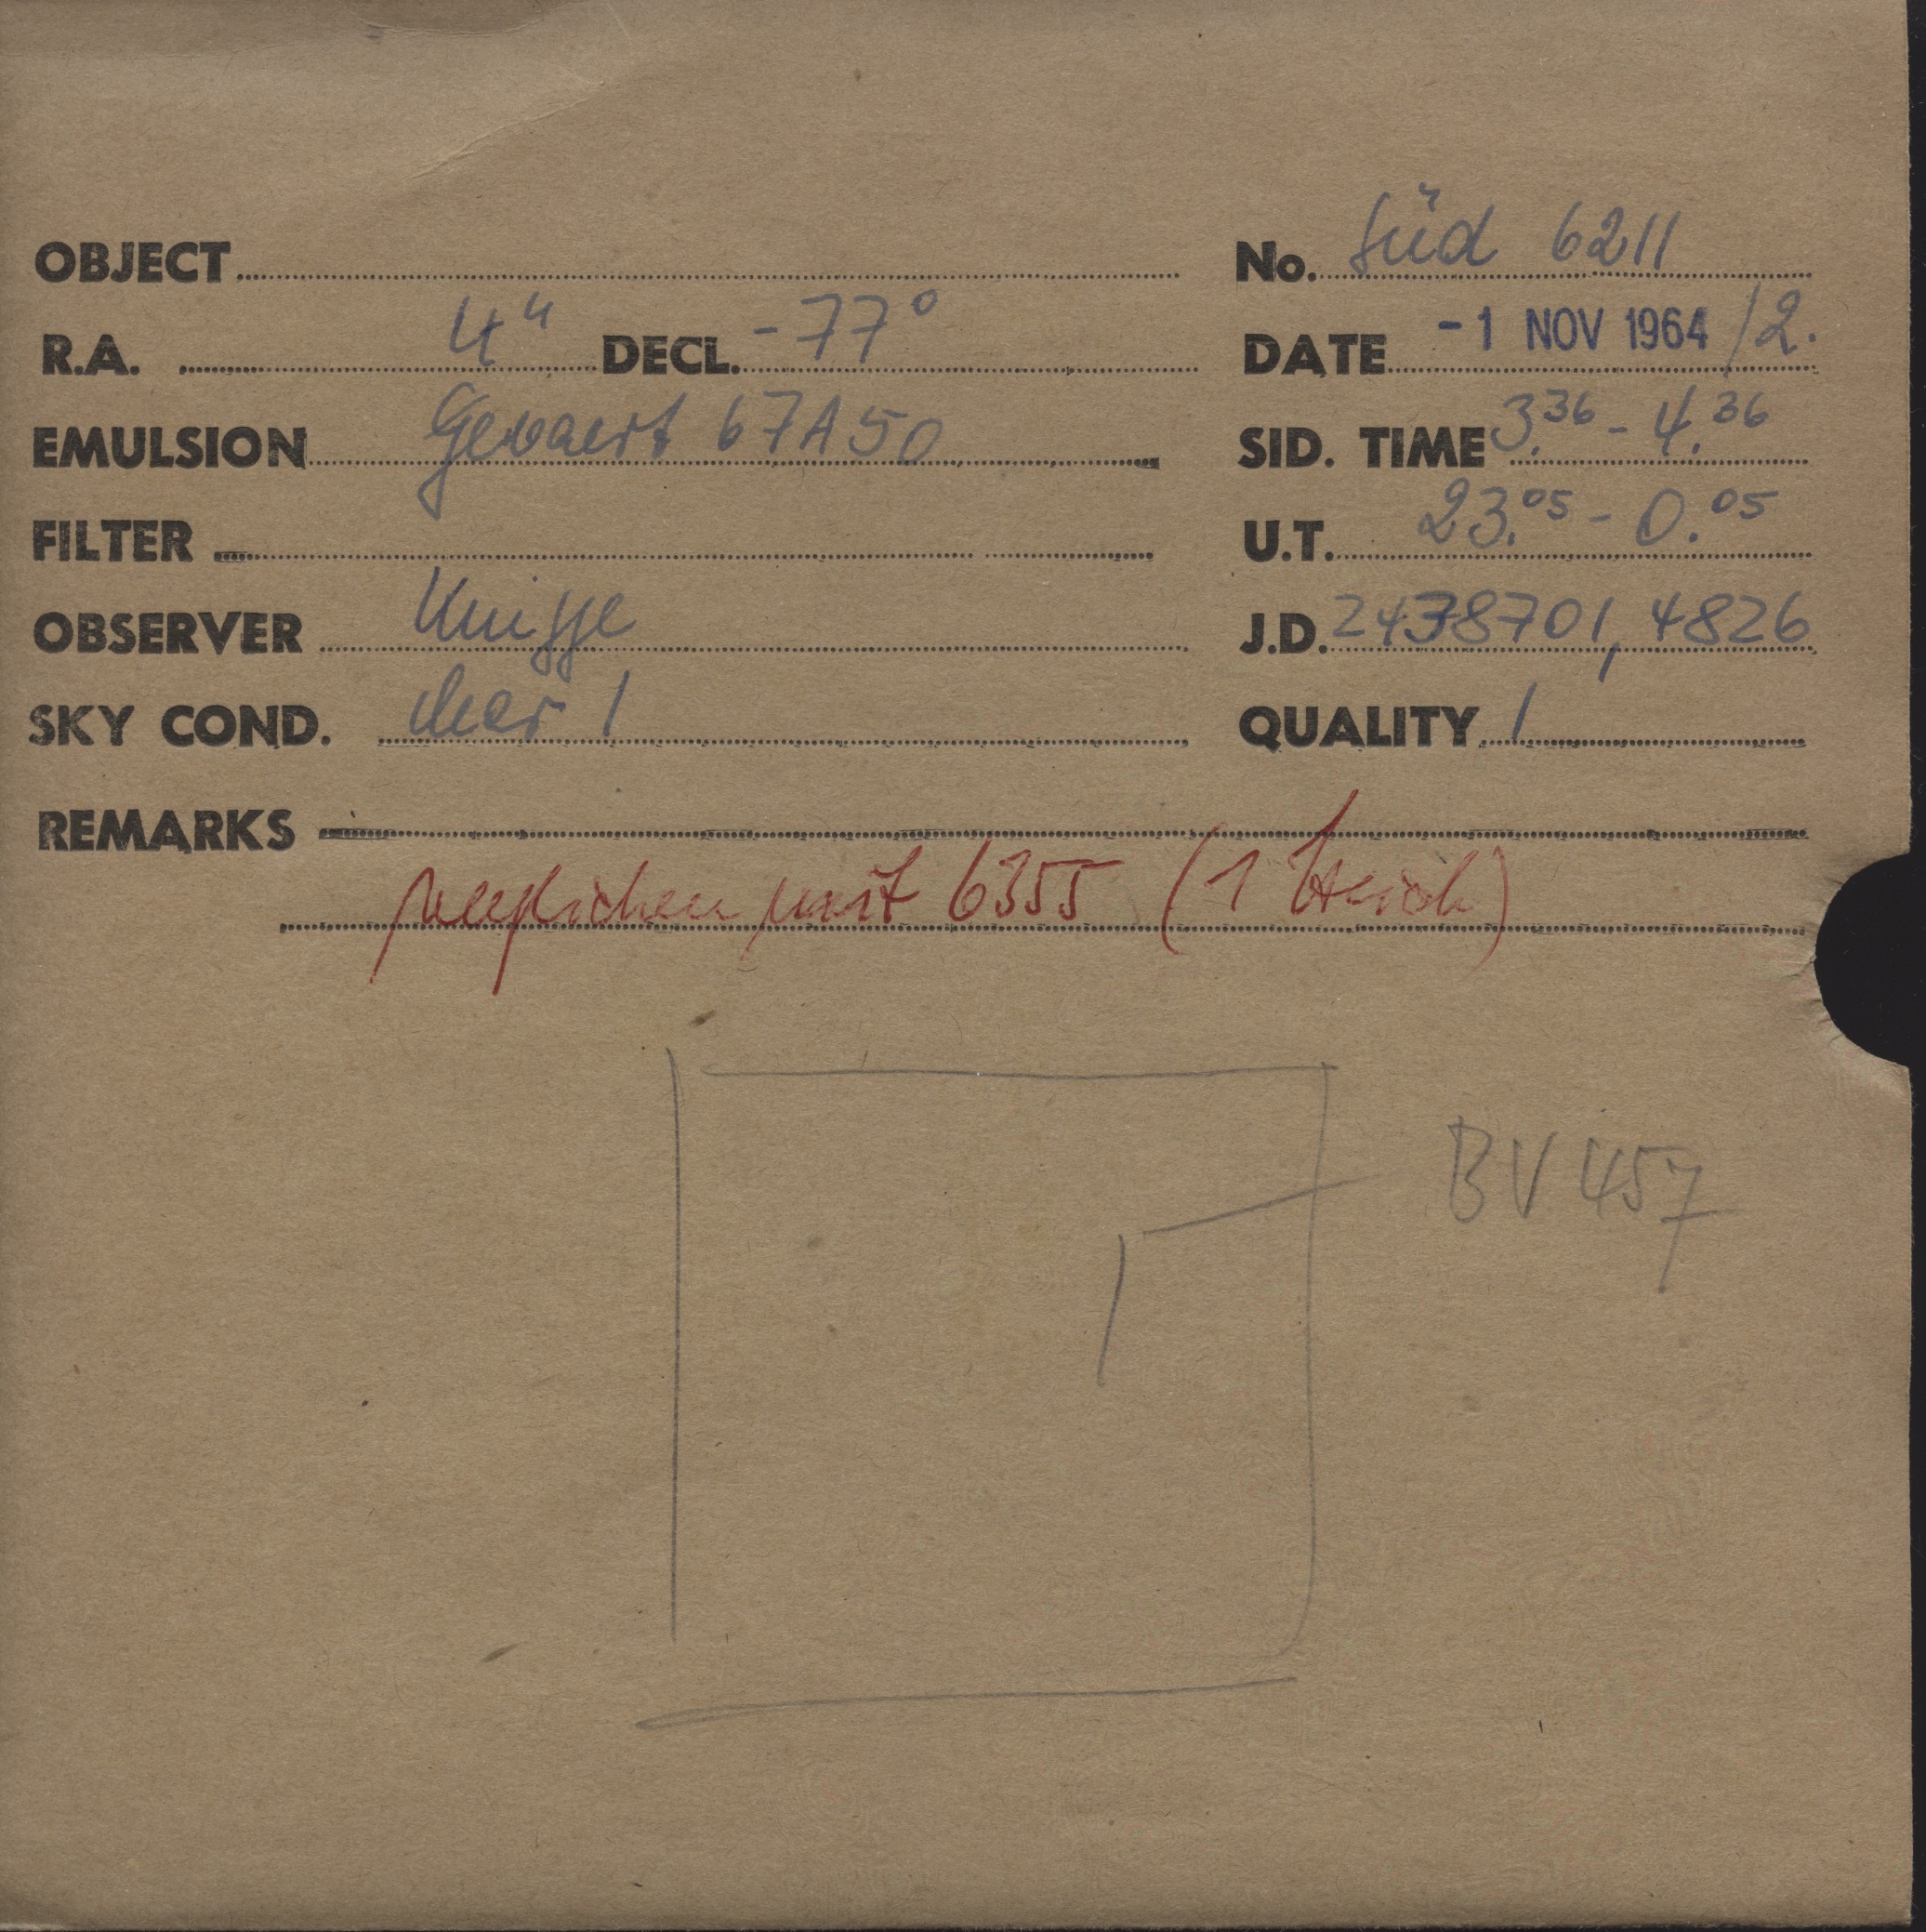 OBJECT No. Süd 6211
R.A. 4h DECL. -77°
DATE -1 NOV 1964 /2.
EMULSION Gevaert 67A50
SID. TIME 3.36 - 4.36
FILTER
U.T. 23.05 - 0.05
OBSERVER Knigge
J.D. 2438701,4826
SKY COND. clear 1
QUALITY 1
REMARKS
verglichen mit 6355 (1 Strich)
BV 457